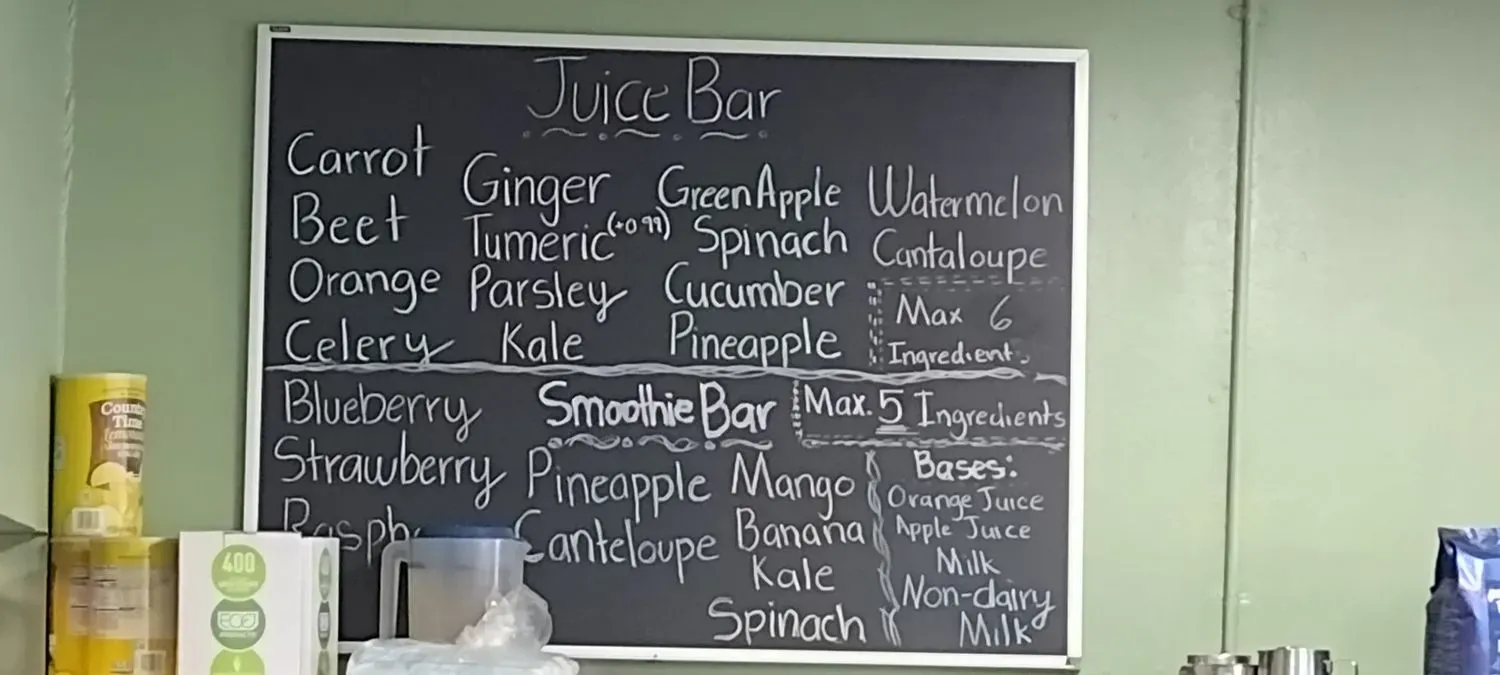 Juice Bar
Carrot
Beet
Orange
Celery
Ginger
Tumeric (+0.99)
Parsley
Kale
Green Apple
Spinach
Cucumber
Pineapple
Watermelon
Cantaloupe
Max 6
Ingredients
Smoothie Bar
Max. 5 Ingredients
Blueberry
Strawberry
Pineapple
Canteloupe
Mango
Banana
Kale
Spinach
Bases:
Orange Juice
Apple Juice
Milk
Non-dairy
Milk
Time
400